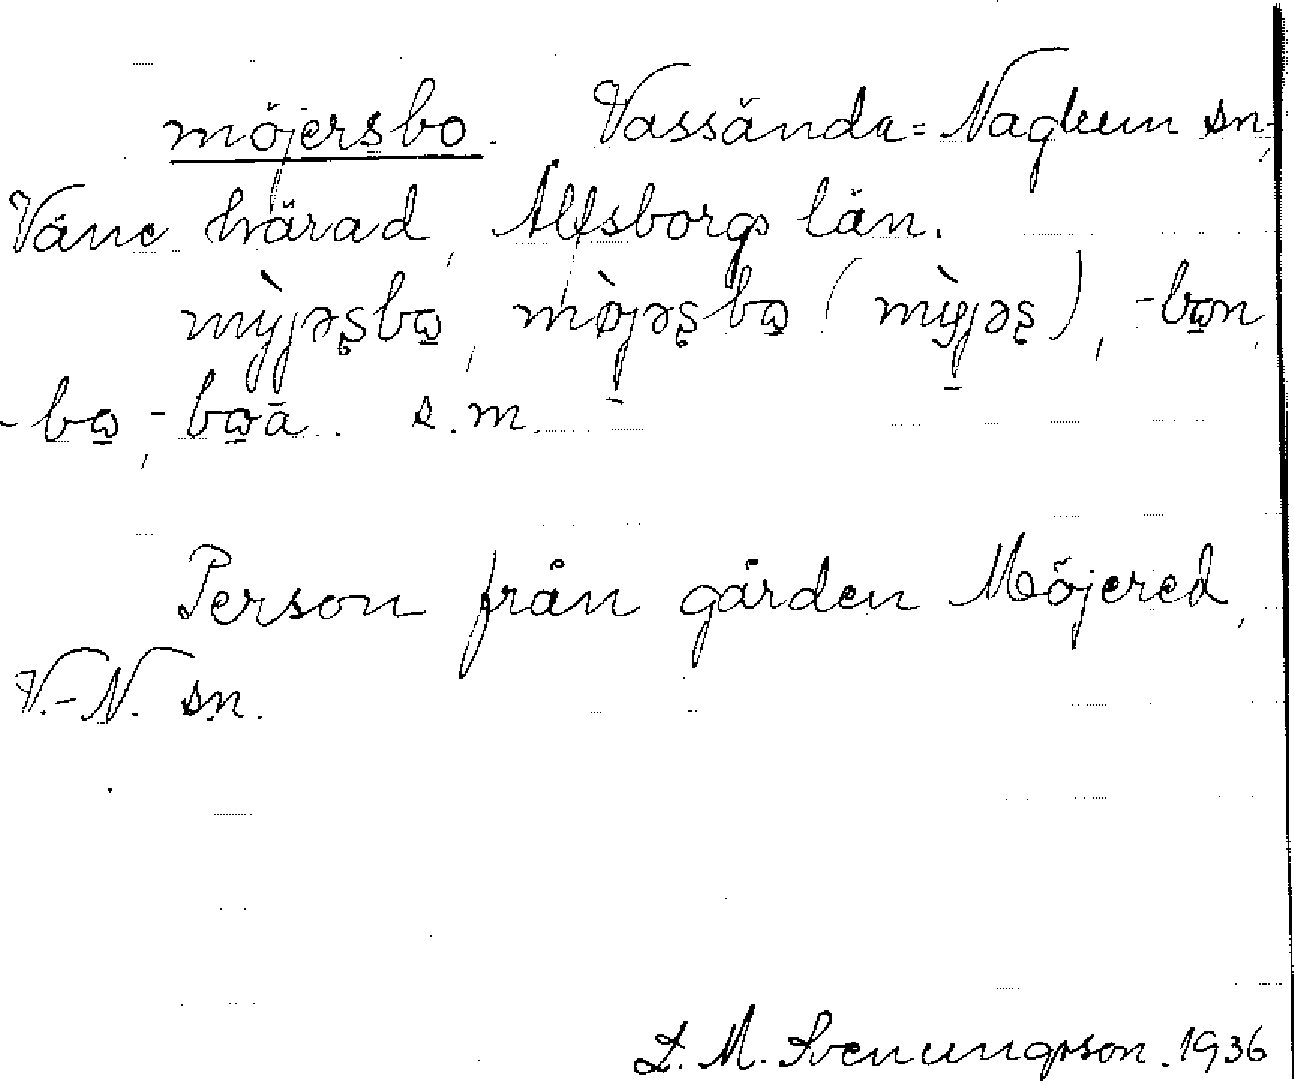 möjersbo. Vassända-Naglum sn,
Väne härad, Älfsborgs län.
mỳjəʂbɷ, mø̀jəʂbɷ (mỳjəʂ), -bɷn,
-bɷ, -bɷā. s.m.
Person från gården Möjered,
V.-N. sn.
L. M. Svenungsson. 1936